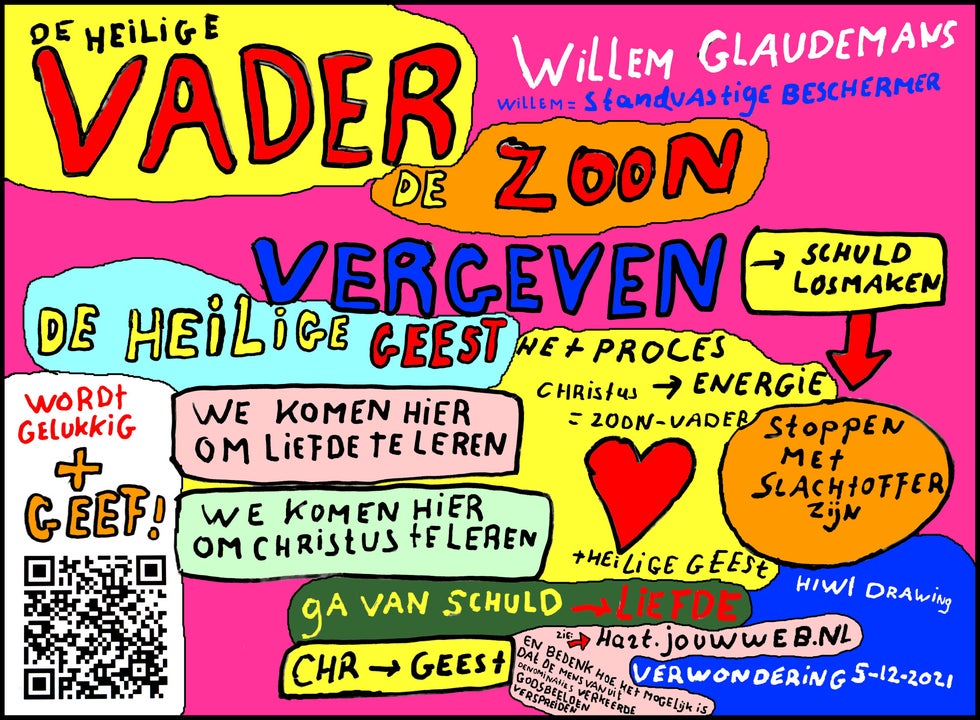 DE HEILIGE
VADER
WILLEM GLAUDEMANS
WILLEM = STANDVASTIGE BESCHERMER
DE ZOON
VERGEVEN
→ SCHULD
LOSMAKEN
DE HEILIGE GEEST
HET PROCES
CHRISTUS → ENERGIE
= ZOON-VADER
+ HEILIGE GEEST
STOPPEN
MET
SLACHTOFFER
ZIJN
WORDT
GELUKKIG
+
GEEF!
WE KOMEN HIER
OM LIEFDE TE LEREN
WE KOMEN HIER
OM CHRISTUS TE LEREN
GA VAN SCHULD → LIEFDE
CHR → GEEST
ZIE: → HART.JOUWWEB.NL
EN BEDENK HOE HET MOGELIJK IS
DAT DE MENS VANUIT
DENOMINATIES VERKEERDE
GODSBEELDEN
VERSPREIDEN
HIWI DRAWING
VERWONDERING 5-12-2021